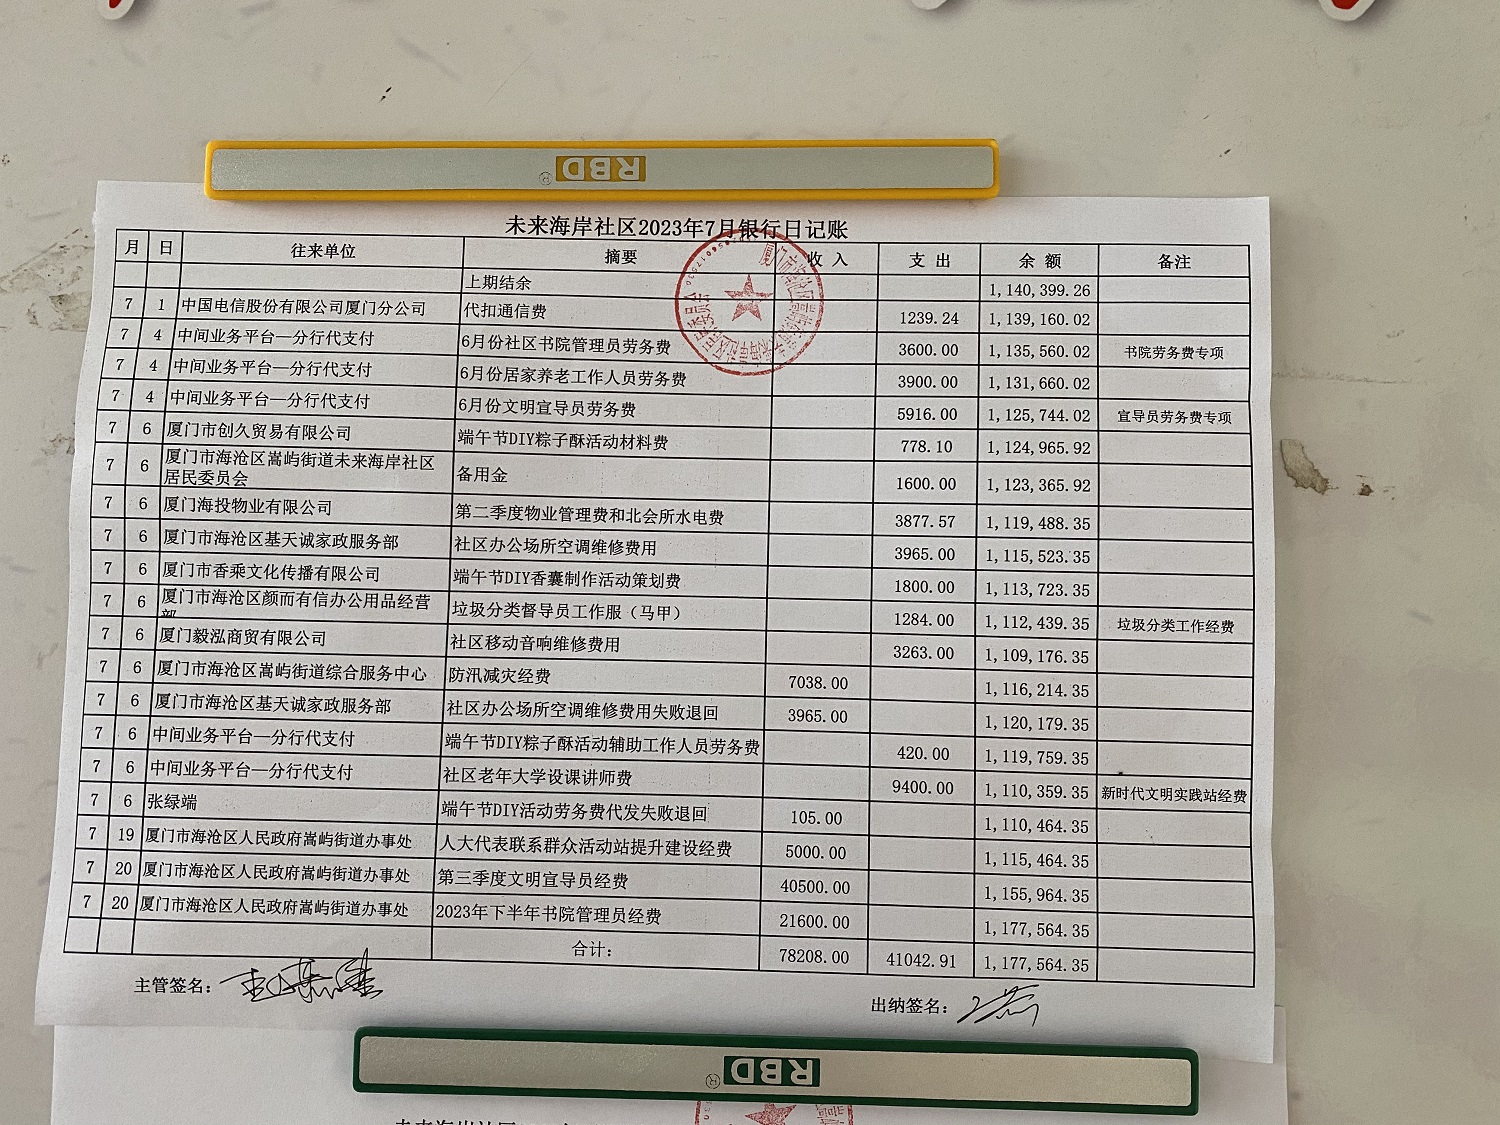 RBD
®
未来海岸社区2023年7月银行日记账
月 日 往来单位 摘要 收入 支出 余额 备注
上期结余 1,140,399.26
7 1 中国电信股份有限公司厦门分公司 代扣通信费 1239.24 1,139,160.02
7 4 中间业务平台—分行代支付 6月份社区书院管理员劳务费 3600.00 1,135,560.02 书院劳务费专项
7 4 中间业务平台—分行代支付 6月份居家养老工作人员劳务费 3900.00 1,131,660.02
7 4 中间业务平台—分行代支付 6月份文明宣导员劳务费 5916.00 1,125,744.02 宣导员劳务费专项
7 6 厦门市创久贸易有限公司 端午节DIY粽子酥活动材料费 778.10 1,124,965.92
7 6 厦门市海沧区嵩屿街道未来海岸社区
居民委员会 备用金 1600.00 1,123,365.92
7 6 厦门海投物业有限公司 第二季度物业管理费和北会所水电费 3877.57 1,119,488.35
7 6 厦门市海沧区基天诚家政服务部 社区办公场所空调维修费用 3965.00 1,115,523.35
7 6 厦门市香乘文化传播有限公司 端午节DIY香囊制作活动策划费 1800.00 1,113,723.35
7 6 厦门市海沧区颜而有信办公用品经营
部 垃圾分类督导员工作服（马甲） 1284.00 1,112,439.35 垃圾分类工作经费
7 6 厦门毅泓商贸有限公司 社区移动音响维修费用 3263.00 1,109,176.35
7 6 厦门市海沧区嵩屿街道综合服务中心 防汛减灾经费 7038.00 1,116,214.35
7 6 厦门市海沧区基天诚家政服务部 社区办公场所空调维修费用失败退回 3965.00 1,120,179.35
7 6 中间业务平台—分行代支付 端午节DIY粽子酥活动辅助工作人员劳务费 420.00 1,119,759.35
7 6 中间业务平台—分行代支付 社区老年大学设课讲师费 9400.00 1,110,359.35 新时代文明实践站经费
7 6 张绿端 端午节DIY活动劳务费代发失败退回 105.00 1,110,464.35
7 19 厦门市海沧区人民政府嵩屿街道办事处 人大代表联系群众活动站提升建设经费 5000.00 1,115,464.35
7 20 厦门市海沧区人民政府嵩屿街道办事处 第三季度文明宣导员经费 40500.00 1,155,964.35
7 20 厦门市海沧区人民政府嵩屿街道办事处 2023年下半年书院管理员经费 21600.00 1,177,564.35
合计： 78208.00 41042.91 1,177,564.35
主管签名：
出纳签名：
RBD
®